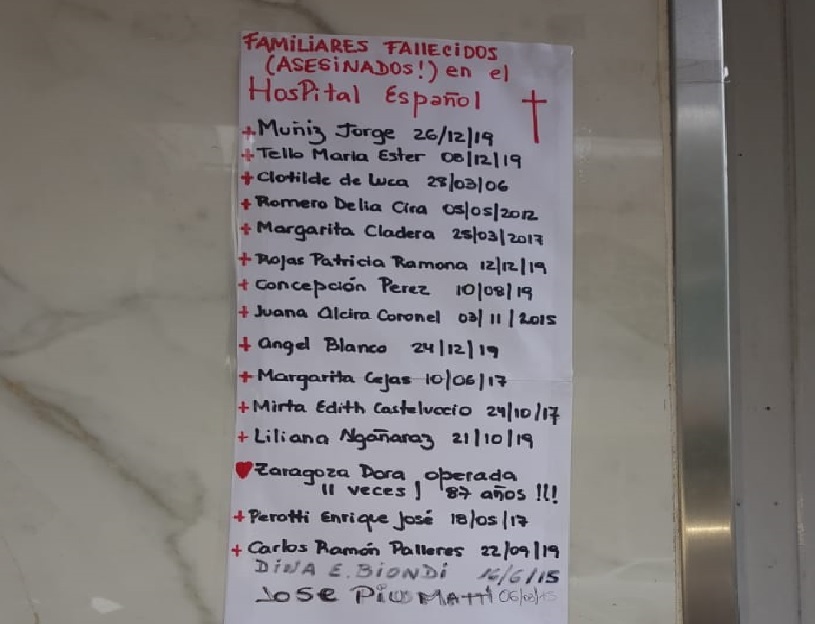 FAMILIARES FALLECIDOS
(ASESINADOS!) en el
Hospital Español
+ Muñiz Jorge 26/12/19
+ Tello Maria Ester 08/12/19
+ Clotilde de Luca 28/03/06
+ Romero Delia Cira 05/05/2012
+ Margarita Cladera 25/03/2017
+ Rojas Patricia Ramona 12/12/19
+ Concepción Perez 10/08/19
+ Juana Alcira Coronel 03/11/2015
+ Angel Blanco 24/12/19
+ Margarita Cejas 10/06/17
+ Mirta Edith Casteluccio 24/10/17
+ Liliana Ngañaraz 21/10/19
Zaragoza Dora, operada
11 veces! 87 años !!!
+ Perotti Enrique José 18/05/17
+ Carlos Ramón Palleres 22/09/19
DINA E. BIONDI 16/6/15
JOSE